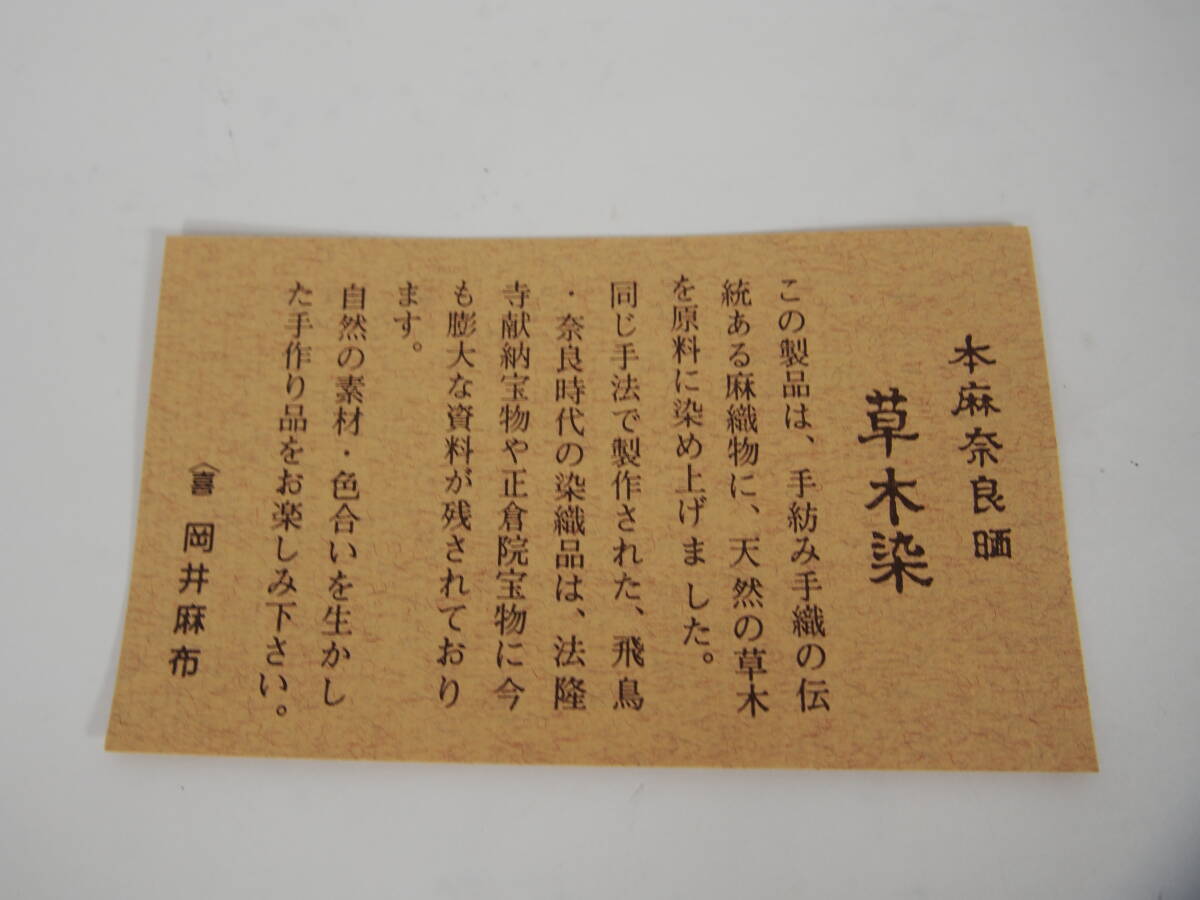 本麻奈良晒
草木染
この製品は、手紡み手織の伝
統ある麻織物に、天然の草木
を原料に染め上げました。
同じ手法で製作された、飛鳥
・奈良時代の染織品は、法隆
寺献納宝物や正倉院宝物に今
も膨大な資料が残されており
ます。
自然の素材・色合いを生かし
た手作り品をお楽しみ下さい。
〈喜 岡井麻布